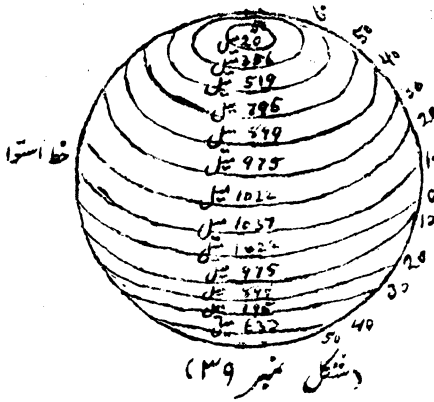 میل
میل
519 میل
796 میل
899 میل
975 میل
1022 میل
1037 میل
1022 میل
975 میل
میل
میل
میل
خط استوا
50
40
30
20
10
0
10
20
30
40
50
(شکل نمبر ۳۹)